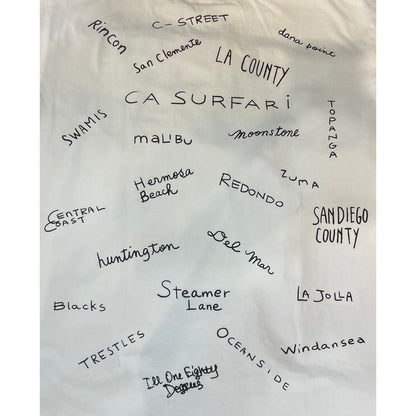 Rincon
C-STREET
dana point
San Clemente
LA COUNTY
CA SURFARi
TOPANGA
SWAMIS
maLIBU
moonstone
Hermosa
Beach
REDONDO
ZUMA
CENTRAL
COAST
SAN DIEGO
COUNTY
huntington
Del Mar
Steamer
Lane
LA JOLLA
Blacks
TRESTLES
OCEANSIDE
Windansea
Ill One Eighty
Degrees